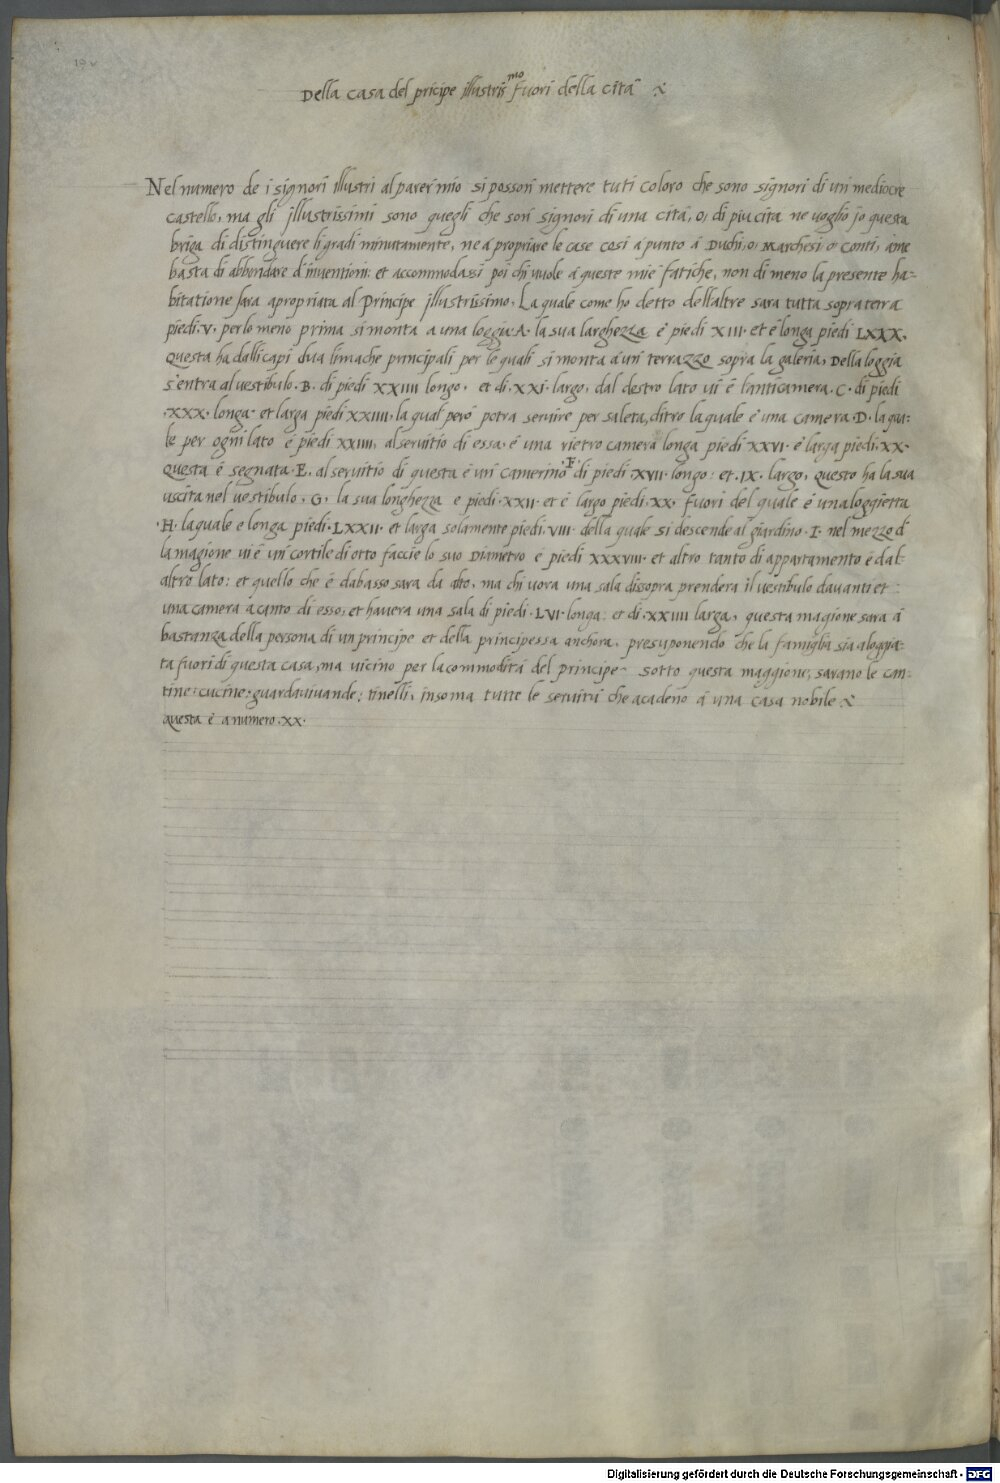 19 v
Della casa del pricipe illustris^mo fuori della cità
Nel numero de i signori illustri al parer mio si posson mettere tuti coloro che sono signori di un mediocre
castello, ma gli illustrissimi sono quegli che son signori di una cità, o, di piu cita ne uoglio io questa
briga di distinguere li gradi minutamente, ne a propriare le case cosi a punto a Duchi, o, Marchesi o conti, ame
basta di abbondare d'inuentioni: et accommodassi poi chi uuole a queste mie fatiche, non di meno la presente ha=
bitatione sara apropriata al Principe illustrissimo. La quale come ho detto dell'altre sara tutta sopra terra
piedi .V. per lo meno prima si monta a una loggia .A. la sua larghezza è piedi XIII. et è longa piedi LXXX.
questa ha dalli capi dua limache principali per le quali si monta a un terrazzo sopra la galeria, Della loggia
s'entra al uestibulo .B. di piedi XXIIII longo, et di .XXI. largo, dal destro lato ui è l'anticamera .C. di piedi
.XXX. longa et larga piedi XXIIII. la qual però potra seruire per saleta, ditro la quale è una camera .D. la qua=
le per ogni lato è piedi XXIIII, al seruitio di essa è una rietro camera longa piedi XXVI. è larga piedi .XX.
questa è segnata .E. al seruitio di questa è un camerino .F. di piedi .XVII. longo: et .IX. largo, questo ha la sua
uscita nel uestibulo, G, la sua longhezza e piedi .XXII. et è largo piedi .XX. fuori del quale è una loggietta
.H. la quale e longa piedi .LXXII. et larga solamente piedi .VIII. della quale si descende al giardino .I. nel mezzo di
la magione ui è un cortile di otto faccie lo suo Diametro è piedi XXXVIII. et altro tanto di appartamento è dal=
altro lato: et quello che è dabasso sara da alto, ma chi vora una sala dissopra prendera il uestibulo dauanti et
una camera a canto di esso, et hauera una sala di piedi .LVI. longa: et di .XXIIII larga, questa magione sara a
bastanza della persona di un principe et della principessa anchora, presuponendo che la famiglia sia aloggia=
ta fuori di questa casa, ma uicino per la commodità del principe. sotto questa maggione, sarano le can=
tine: cucine: guardauiuande: tinelli, insoma tutte le seruitù che acadeno a una casa nobile
questa è a numero .XX.
Digitalisierung gefördert durch die Deutsche Forschungsgemeinschaft - DFG